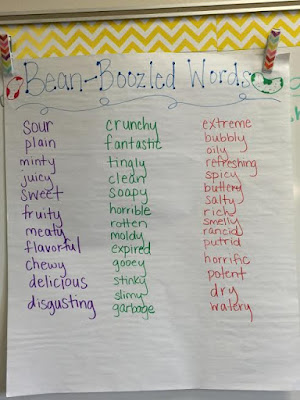 Bean-Boozled Words
sour
plain
minty
juicy
sweet
fruity
meaty
flavorful
chewy
delicious
disgusting
crunchy
fantastic
tingly
clean
soapy
horrible
rotten
moldy
expired
gooey
stinky
slimy
garbage
extreme
bubbly
oily
refreshing
spicy
buttery
salty
rich
smelly
rancid
putrid
horrific
potent
dry
watery